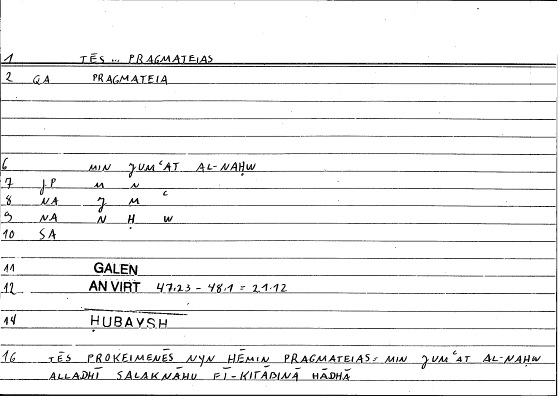 1 TĒS ... PRAGMATEIAS
2 QA PRAGMATEIA
6 MIN JUMᶜAT AL-NAḤW
7 JP M N
8 NA J M ᶜ
9 NA N Ḥ W
10 SA
11 GALEN
12 AN VIRT 47.23 - 48.1 = 21.12
14 ḤUBAYSH
16 TĒS PROKEIMENĒS NYN HĒMIN PRAGMATEIAS = MIN JUMᶜAT AL-NAḤW
ALLADHĪ SALAKNĀHU FĪ-KITĀBINĀ HĀDHĀ